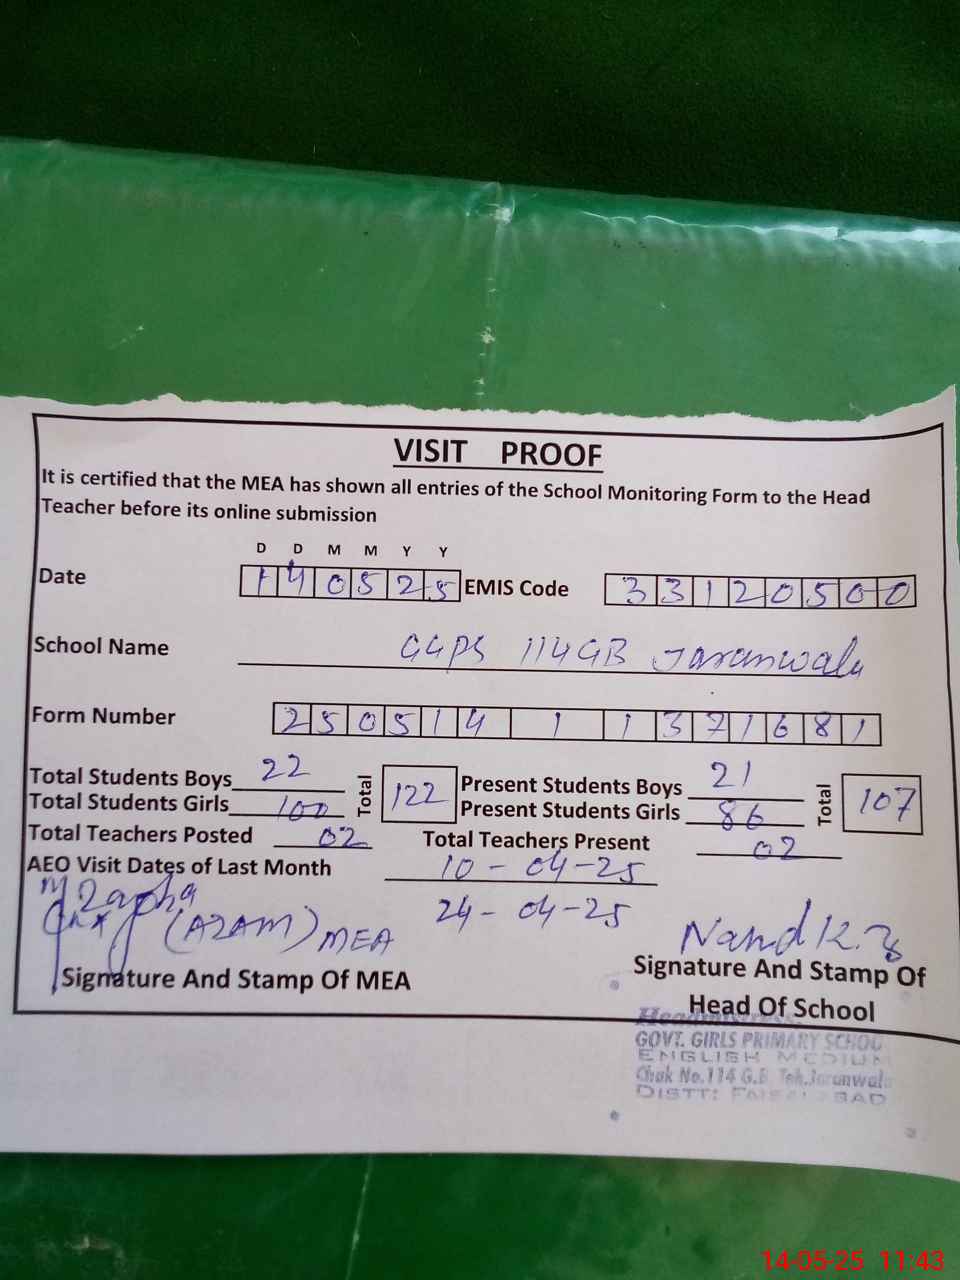 VISIT PROOF
It is certified that the MEA has shown all entries of the School Monitoring Form to the Head
Teacher before its online submission
D D M M Y Y
Date 1 4 0 5 2 5 EMIS Code 3 3 1 2 0 5 0 0
School Name GGPS 114GB Jaranwala
Form Number 2 5 0 5 1 4 1 1 3 7 1 6 8 1
Total Students Boys 22 Total 122 Present Students Boys 21 Total 107
Total Students Girls 100 Present Students Girls 86
Total Teachers Posted 02 Total Teachers Present 02
AEO Visit Dates of Last Month 10-04-25
24-04-25
(AZAM) MEA
Signature And Stamp Of MEA
Signature And Stamp Of
Head Of School
Headmistress
GOVT. GIRLS PRIMARY SCHOOL
ENGLISH MEDIUM
Chak No.114 G.B Teh.Jaranwala
DISTT: FAISALABAD
14-05-25 11:43